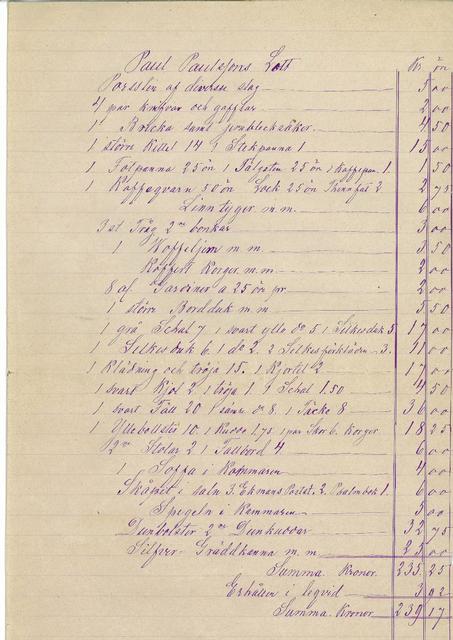 Paul Paulssons Lott
Kr. ön
Porslin af diverse slag 5 00
4 par knifvar och gafflar 2 00
1 Bricka samt jernblecksaker 4 50
1 större Kittel 14 1 Stekpanna 1 15 00
1 Fotpanna 25 ön 1 Talgsten 25 ön 1 Kaffepan. 1. 1 50
1 Kaffeqvarn 50 ön Lock 25 ön Tennfat 2 2 75
Linn tyger m.m. 6 00
3 st Tråg 2ne bonkar 3 00
1 Woffeljern m m 3 50
Koffert Korger m.m 2 00
8 af Gardiner a 25 ön pr 2 00
1 större Bordduk m m 5 50
1 grå Schal 7 1 svart ylle do 5 1 Silkesduk 5 17 00
1 Silkesduk 6. 1 do 2. 2 Silkesförkläden 3. 11 00
1 Klädning och tröja 15. 1 Kjortel 2 17 00
1 svart Kjol 2 1 tröja 1. 1 Schal 1.50 4 50
1 svart Fäll 20 1 sämr. do 8 1 Täcke 8 36 00
1 Yllebolster 10 1 Kudde 1.75. 1 par Skor 6. Korger 18 25
12 Stolar 2 1 Fallbord 4 6 00
1 Soffa i Kammaren 4 00
Skåpet i saln 3. Ekmans Postat. 2. Psalmbok 1. 6 00
Spegeln i Kammaren 5 00
Dunbolster 2ne Dunkuddar 32 75
Silfver Gräddkanna m. m. 25 00
Summa Kronor. 235. 25
Erhållen i leqvid 3 92
Summa Kronor 239 17